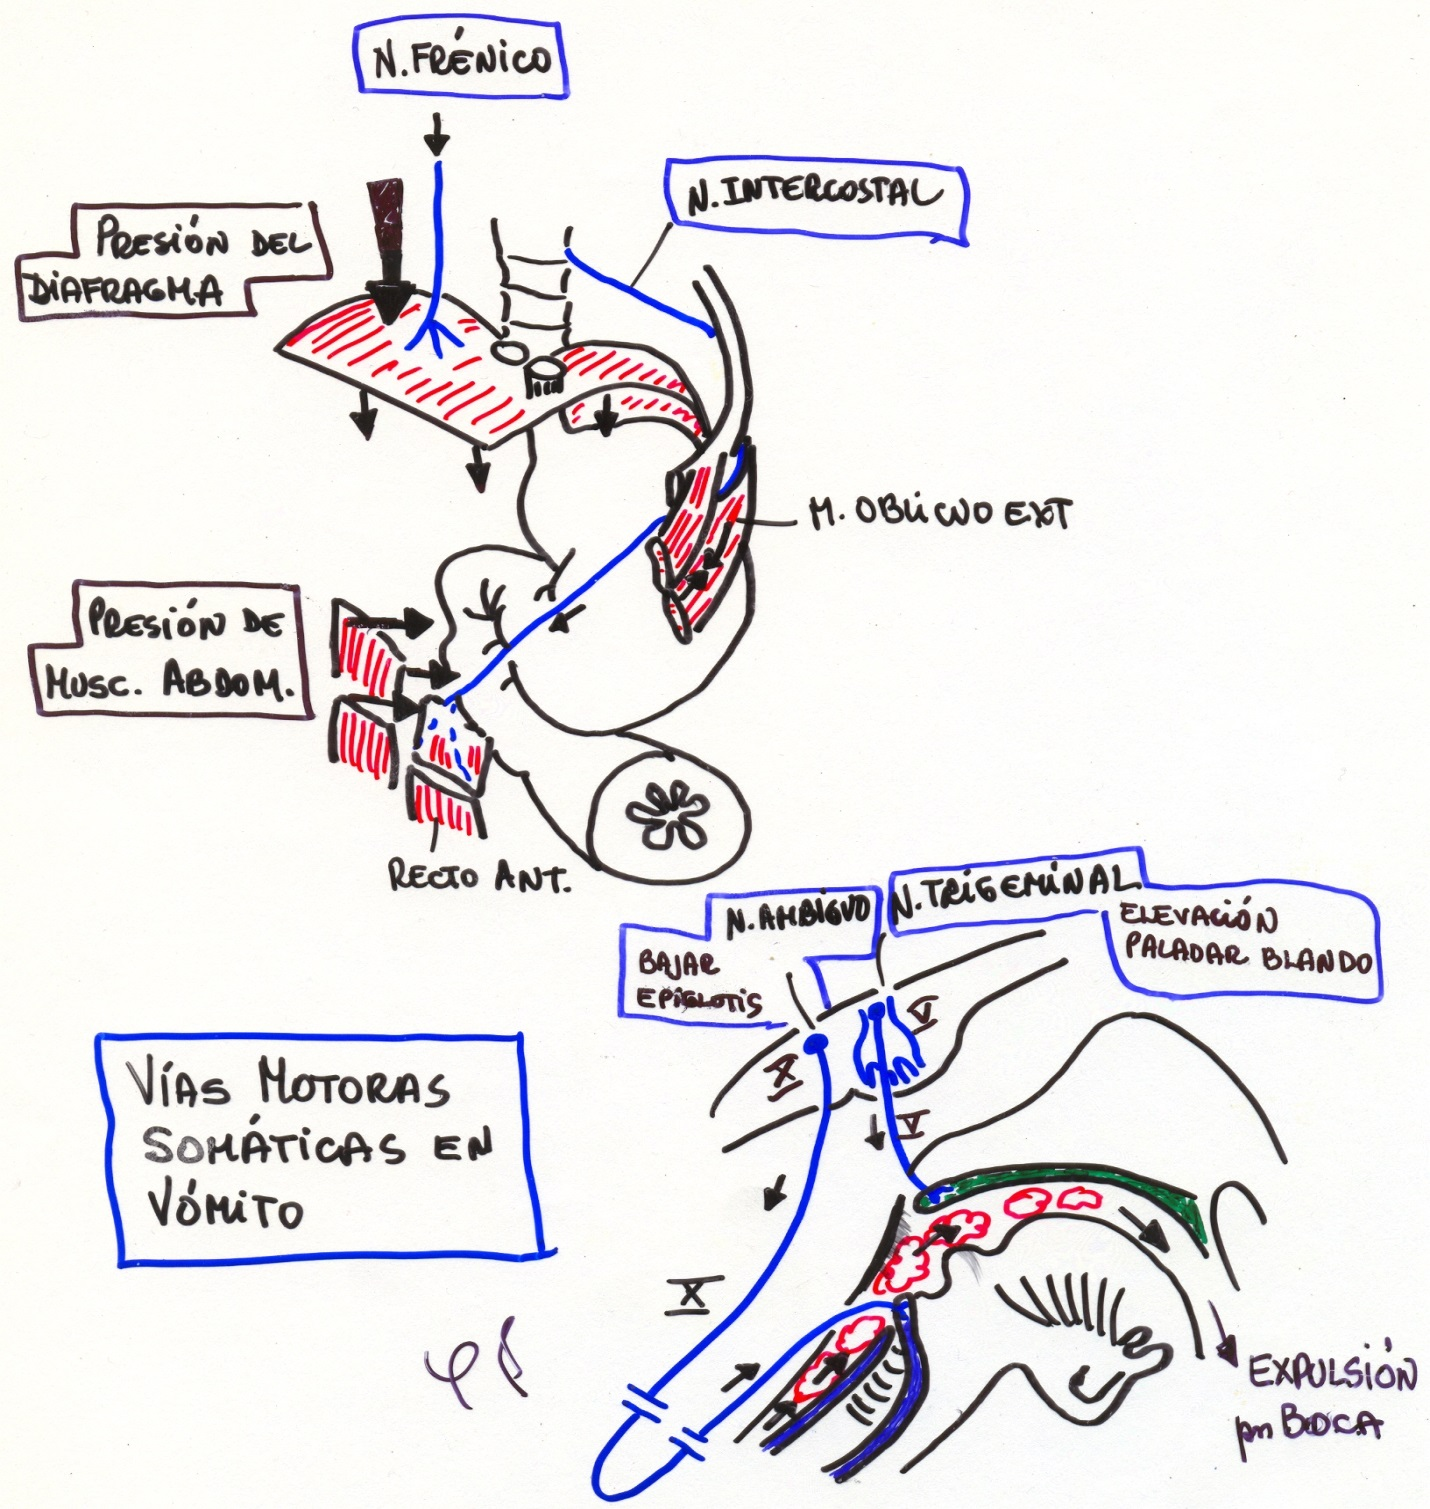 N. FRÉNICO
N. INTERCOSTAL
PRESIÓN DEL
DIAFRAGMA
M. OBLICUO EXT
PRESIÓN DE
MUSC. ABDOM.
RECTO ANT.
N. AMBIGUO
BAJAR
EPIGLOTIS
N. TRIGEMINAL
ELEVACIÓN
PALADAR BLANDO
X
V
V
X
VÍAS MOTORAS
SOMÁTICAS EN
VÓMITO
EXPULSIÓN
por BOCA